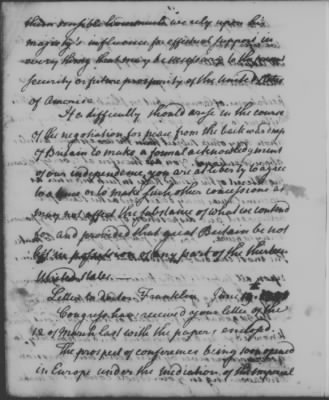 them possible we rely upon his
majesty's influence for effectual support in
every thing that may be necessary to the present
security or future prosperity of the United States
of America.
If a difficulty should arise in the course
of the negotiation for peace from the backwardness
of Britain to make a formal acknowledgment
of our independence you are at liberty to agree
to a truce or to make such other concessions as
may not affect the substance of what we contend
for and provided that great Britain be not
left in possession of any part of the thirteen
United States.
Letter to doctor Franklin June
Congress have received your letter of the
12 of March last with the papers enclosed.
The prospect of conferences being soon opened
in Europe under the mediation of the Imperial